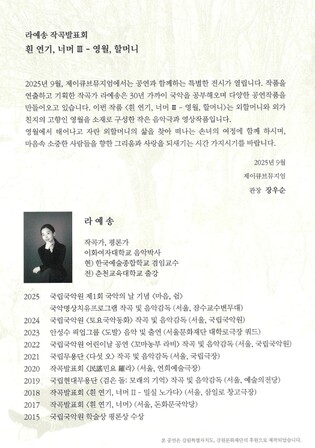 라예송 작곡발표회
흰 연기, 너머 Ⅲ - 영월, 할머니
2025년 9월, 제이큐브뮤지엄에서는 공연과 함께하는 특별한 전시가 열립니다. 작품을
연출하고 기획한 작곡가 라예송은 30년 가까이 국악을 공부해오며 다양한 공연작품을
만들어오고 있습니다. 이번 작품 <흰 연기, 너머 Ⅲ - 영월, 할머니>는 외할머니와 외가
친지의 고향인 영월을 소재로 구성한 작은 음악극과 영상작품입니다.
영월에서 태어나고 자란 외할머니의 삶을 찾아 떠나는 손녀의 여정에 함께 하시며,
마음속 소중한 사람들을 향한 그리움과 사랑을 되새기는 시간 가지시기를 바랍니다.
2025년 9월
제이큐브뮤지엄
관장 장우순
라 예 송
작곡가, 평론가
이화여자대학교 음악박사
현) 한국예술종합학교 겸임교수
전) 춘천교육대학교 출강
2025 국립국악원 제1회 국악의 날 기념 <마음, 쉼>
국악명상치유프로그램 작곡 및 음악감독 (서울, 잠수교수변무대)
2024 국립국악원 <토요국악동화> 작곡 및 음악감독 (서울, 국립국악원)
2023 안성수 픽업그룹 <도발> 음악 및 출연 (서울문화재단 대학로극장 쿼드)
2022 국립국악원 어린이날 공연 <꼬마농부 라비> 작곡 및 음악감독 (서울, 국립국악원)
2021 국립무용단 <다섯 오> 작곡 및 음악감독 (서울, 국립극장)
2020 작곡발표회 (서울, 연희예술극장)
2019 국립현대무용단 <검은 돌: 모래의 기억> 작곡 및 음악감독 (서울, 예술의전당)
2018 작곡발표회 <흰 연기, 너머 Ⅱ - 밀실 노가다> (서울, 삼일로 창고극장)
2017 작곡발표회 <흰 연기, 너머> (서울, 돈화문국악당)
2015 국립국악원 학술상 평론상 수상
본 공연은 강원특별자치도, 강원문화재단의 후원으로 제작되었습니다.